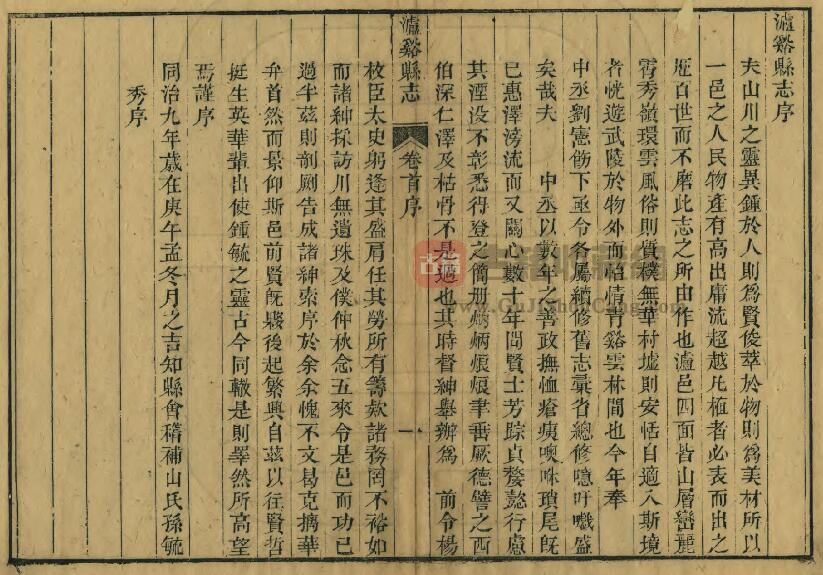 瀘谿縣志序
夫山川之靈異鍾於人則爲賢俊萃於物則爲美材所以
一邑之人民物產有高出庸流超越凡植者必表而出之
歷百世而不磨此志之所由作也瀘邑四面皆山層巒麗
霄秀嶺環雲風俗則質樸無華村墟則安恬自適入斯境
者恍遊武陵於物外而怡情靑谿雲林間也今年奉
中丞劉憲飭下亟令各屬續修舊志彙省總修噫吁嚱盛
矣哉夫　中丞以數年之善政撫恤瘡痍噢咻瑣尾旣
已惠澤滂流而又關心數十年間賢士芳踪貞嫠懿行慮
其湮没不彰悉得登之簡册炳炳烺烺聿垂厥德譬之西
伯深仁澤及枯骨不是過也其時督紳舉辦爲　前令楊
瀘谿縣志　卷首序　一
枚臣太史躬逢其盛肩任其勞所有籌款諸務罔不裕如
而諸紳採訪川無遺珠及僕仲秋念五來令是邑而功已
過半茲則剞劂告成諸紳索序於余余愧不文曷克摛華
弁首然而景仰斯邑前賢旣躩後起繁興自茲以往賢哲
挺生英華輩出使鍾毓之靈古今同轍是則睪然所高望
焉謹序
同治九年歲在庚午孟冬月之吉知縣會稽補山氏孫毓
秀序
古籍收藏網
www.GuJiShouCang.com